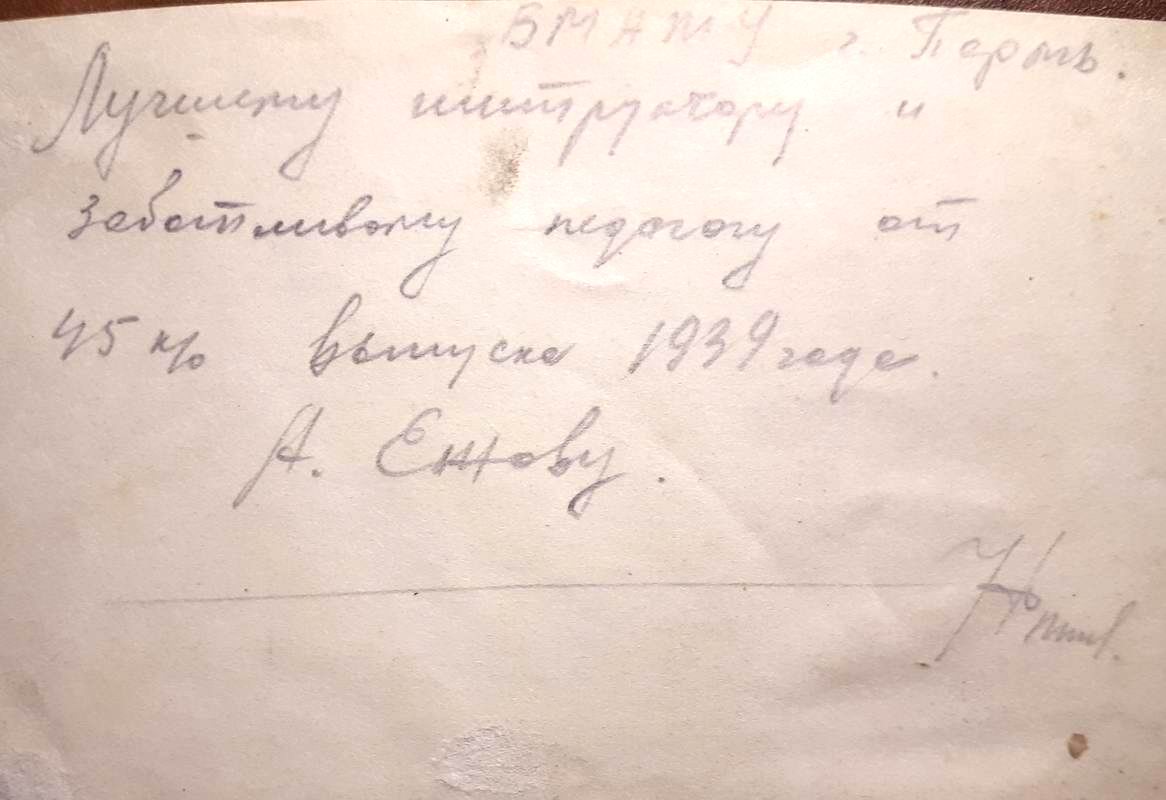 г. Пермь.
Лучшему инструктору и
заботливому педагогу от
45 к/о выпуска 1939 года.
А. Ежову.